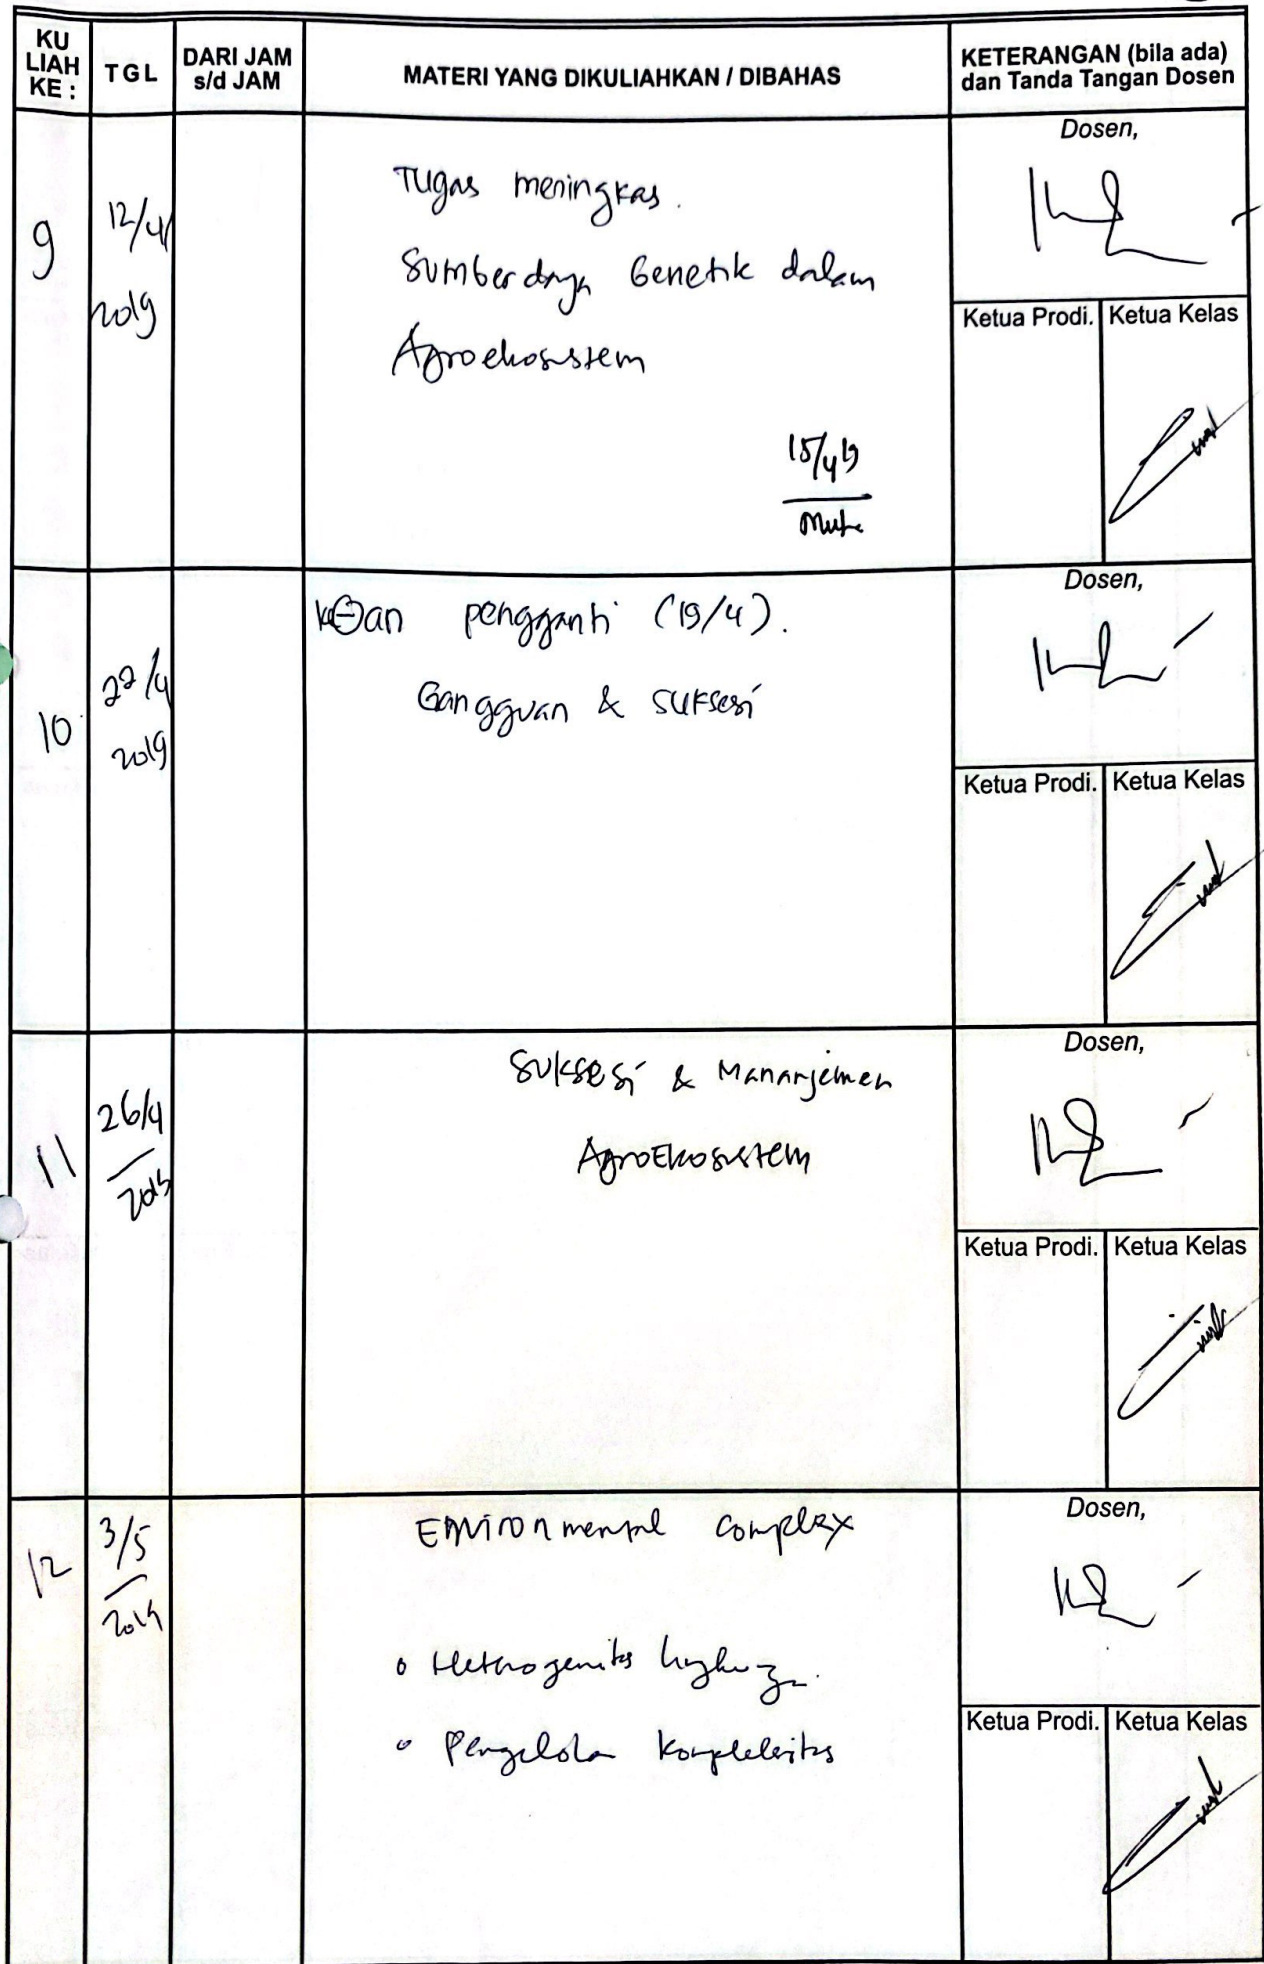 KU LIAH KE :
TGL
DARI JAM s/d JAM
MATERI YANG DIKULIAHKAN / DIBAHAS
KETERANGAN (bila ada) dan Tanda Tangan Dosen
9
12/4
2019
Tugas meningkas.
Sumberdaya Genetik dalam
Agroekosistem
15/4 19
Dosen,
Ketua Prodi.
Ketua Kelas
10
22/4
2019
pengganti (19/4).
Gangguan & suksesi
Dosen,
Ketua Prodi.
Ketua Kelas
11
26/4
2019
Suksesi & Mananjemen
AgroEkosistem
Dosen,
Ketua Prodi.
Ketua Kelas
12
3/5
2019
Environmental complex
o Heterogenitas
o Pengelola kompleksitas
Dosen,
Ketua Prodi.
Ketua Kelas